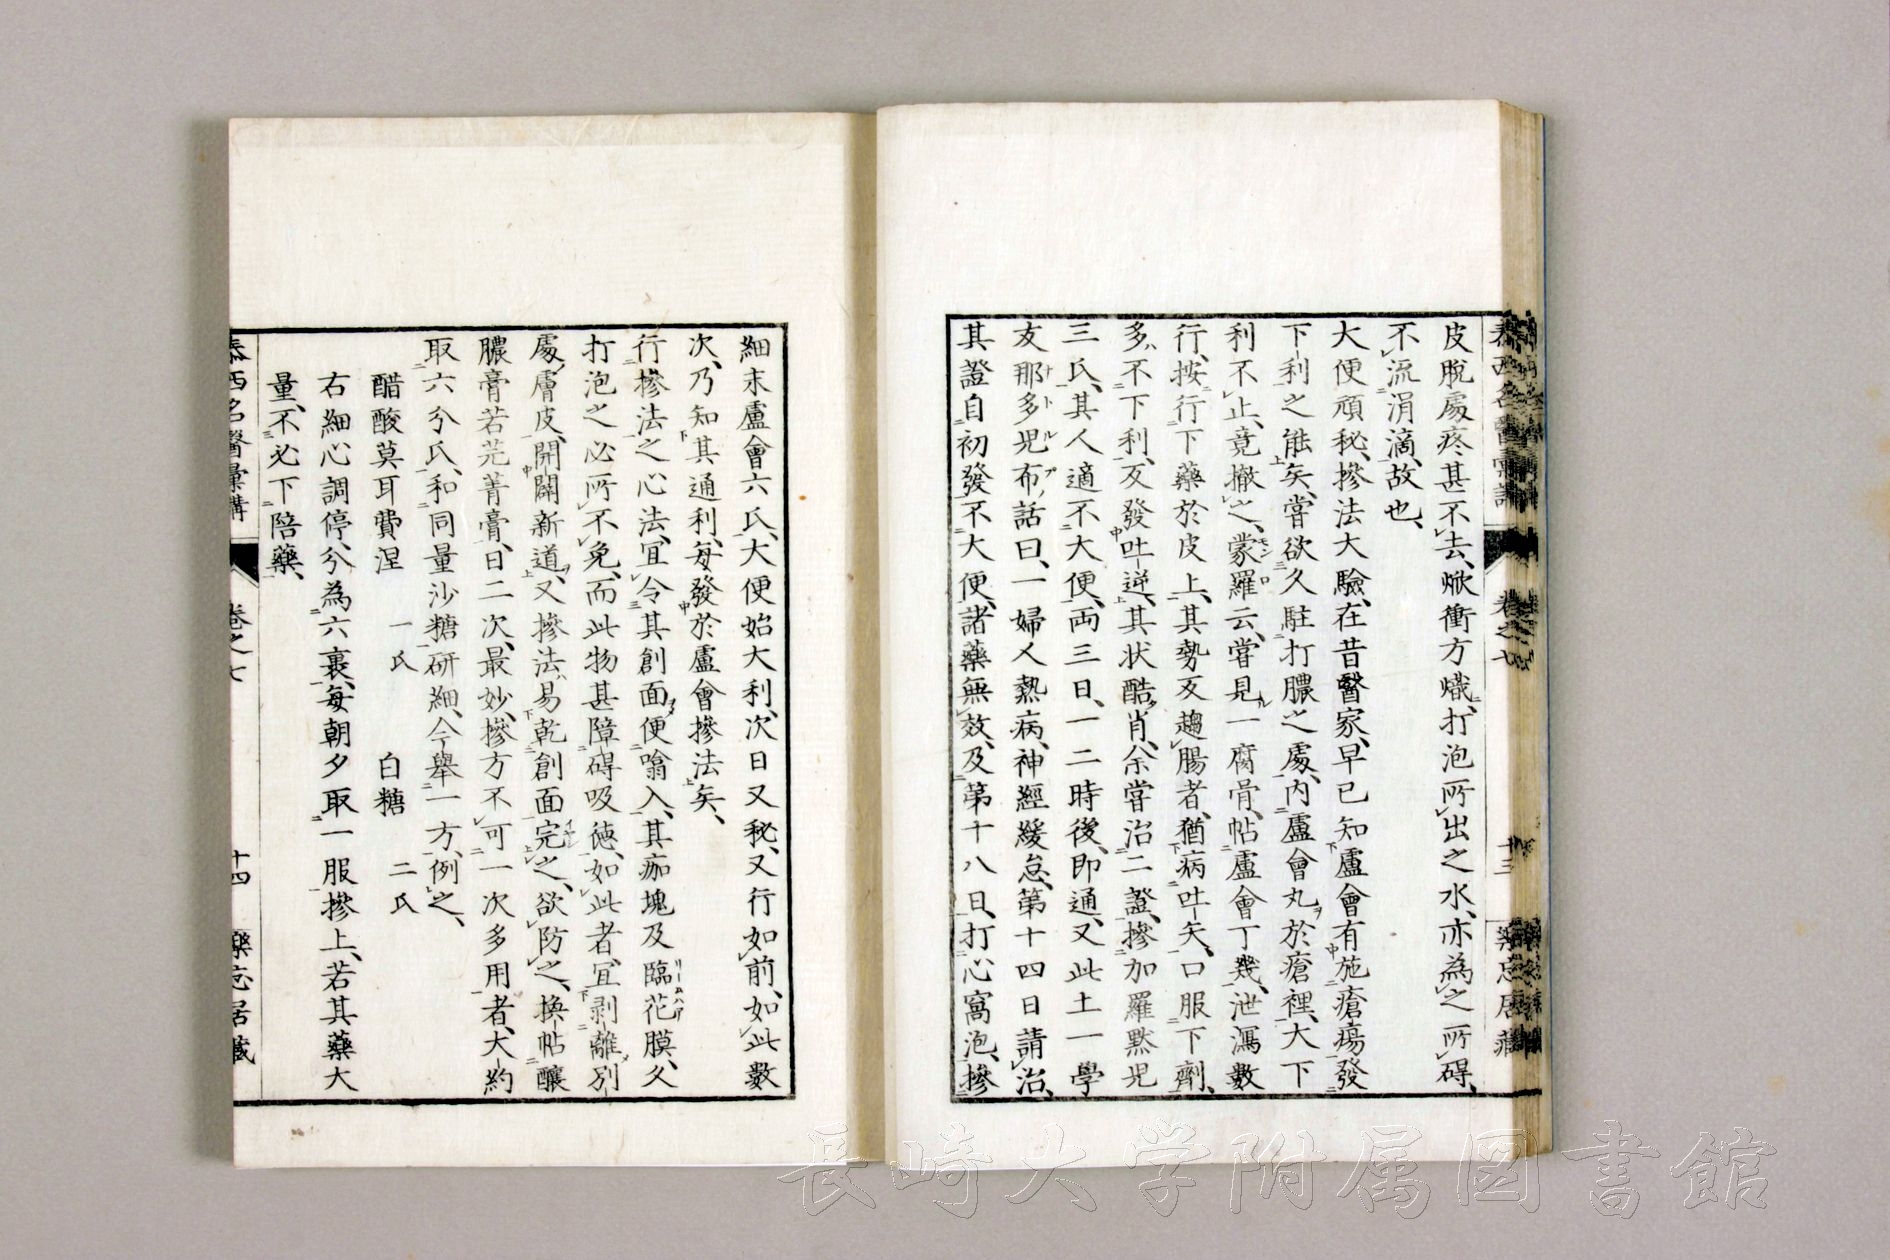 皮脱處疼甚不去、焮衝方熾、打泡所出之水、亦為之所碍、
不流涓滴、故也、
大便頑秘、摻法大驗、在昔醫家、早已知盧會有施瘡瘍發
下利之能矣、嘗欲久駐打膿之處、内盧會丸於瘡裡、大下
利不止、竟撤之、蒙羅云、嘗見一腐骨、帖盧會丁幾、泄瀉數
行、按行下藥於皮上、其勢亙趨腸者、猶病吐矢、口服下劑、
多不下利、亙發吐逆、其状酷肖、余嘗治二證、摻加羅黙児
三氏、其人適不大便、両三日、一二時後、即通、又此土一學
友那多児布話曰、一婦人熱病、神經緩怠、第十四日請治、
其證自初發不大便、諸藥無效、及第十八日、打心窩泡、摻
泰西名醫彙講 卷之七 十三 樂志居藏
細末盧會六氏、大便始大利、次日又秘、又行如前、如此數
次、乃知其通利、毎發於盧會摻法矣、
行摻法之心法、宜令其創面便噏入、其痂塊及臨花膜、久
打泡之必所不免、而此物甚障碍吸徳、如此者、宜剥離別
處膚皮、開闢新道、又摻法、易乾創面完之、欲防之、換帖釀
膿膏若芫菁膏、日二次、最妙、摻方不可一次多用者、大約
取六分氏、和同量沙糖研細、今舉一方、例之、
醋酸莫耳費涅 一氏 白糖 二氏
右細心調停、分為六裹、毎朝夕取一服摻上、若其藥大
量、不必下陪藥、
泰西名醫彙講 卷之七 十四 樂志居藏
長崎大学附属図書館